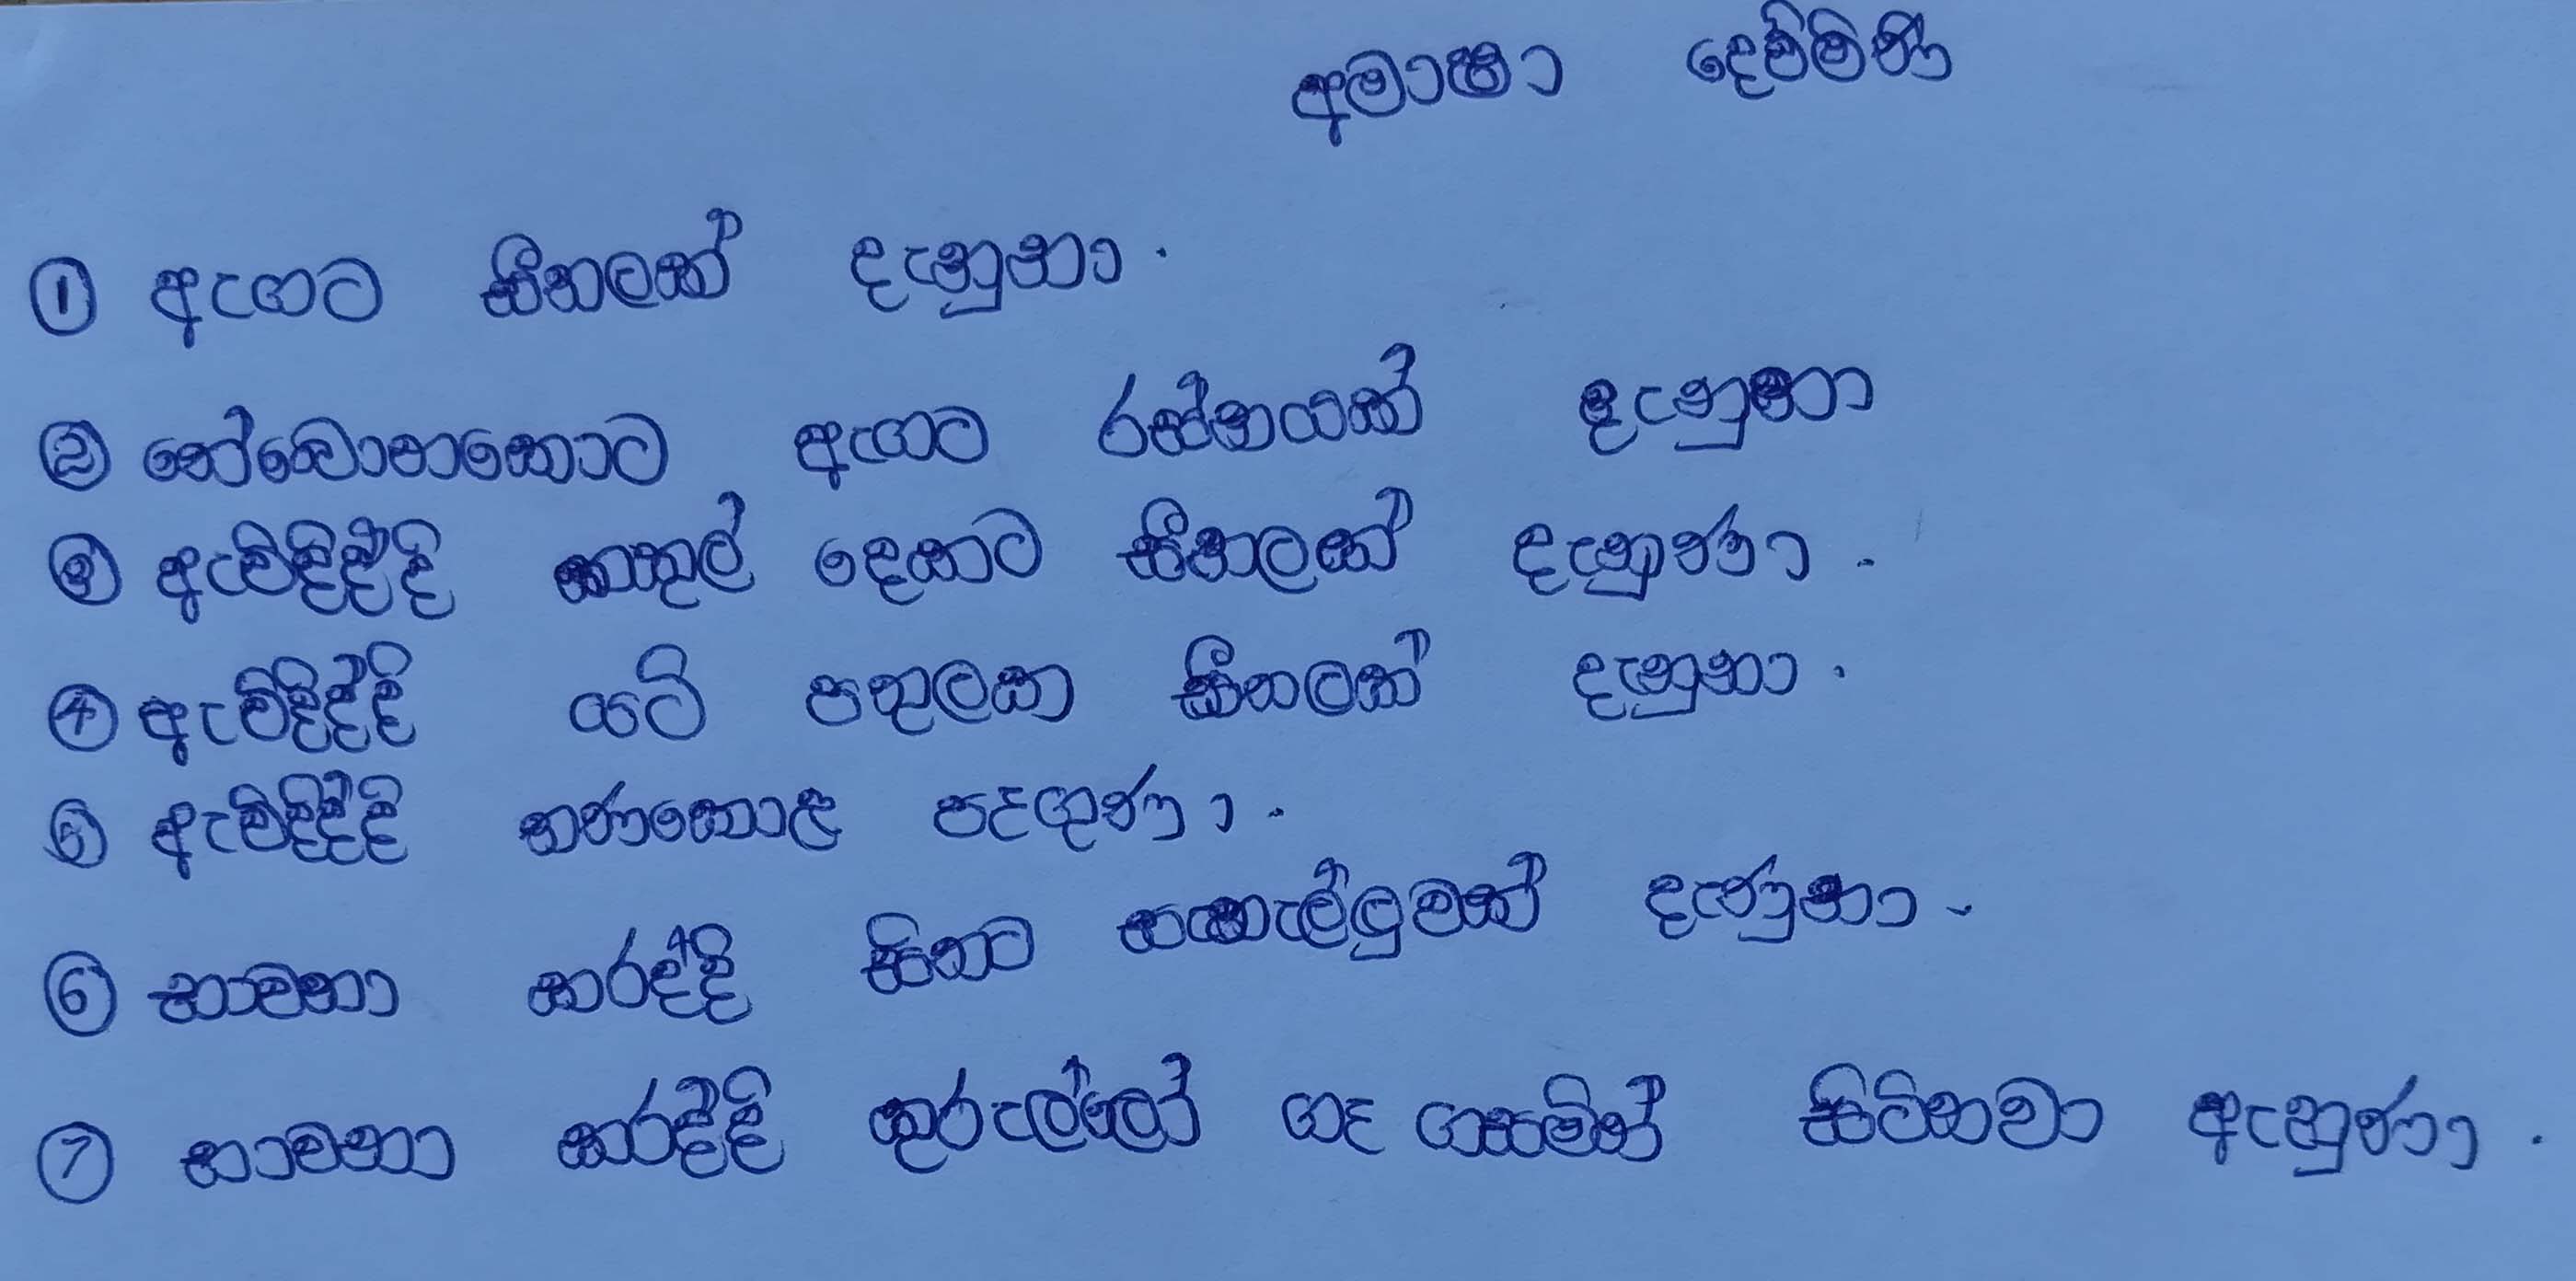 අමාෂා දෙව්මිණි
① ඇගට සීතලක් දැනුනා.
② තේබොනකොට ඇගට රස්නයක් දැනුනා
③ ඇවිදිද්දි කකුල් දෙකට සීතලක් දැනුණා.
④ ඇවිදිද්දි යටි පතුලක සීතලක් දැනුනා.
⑤ ඇවිදිද්දි තණකොළ පෑගුණා.
⑥ භාවනා කරද්දි හිතට සැහැල්ලුවක් දැණුනා.
⑦ භාවනා කරද්දි කුරුල්ලෝ ගෑ ගසමින් සිටිනවා ඇනුණා.